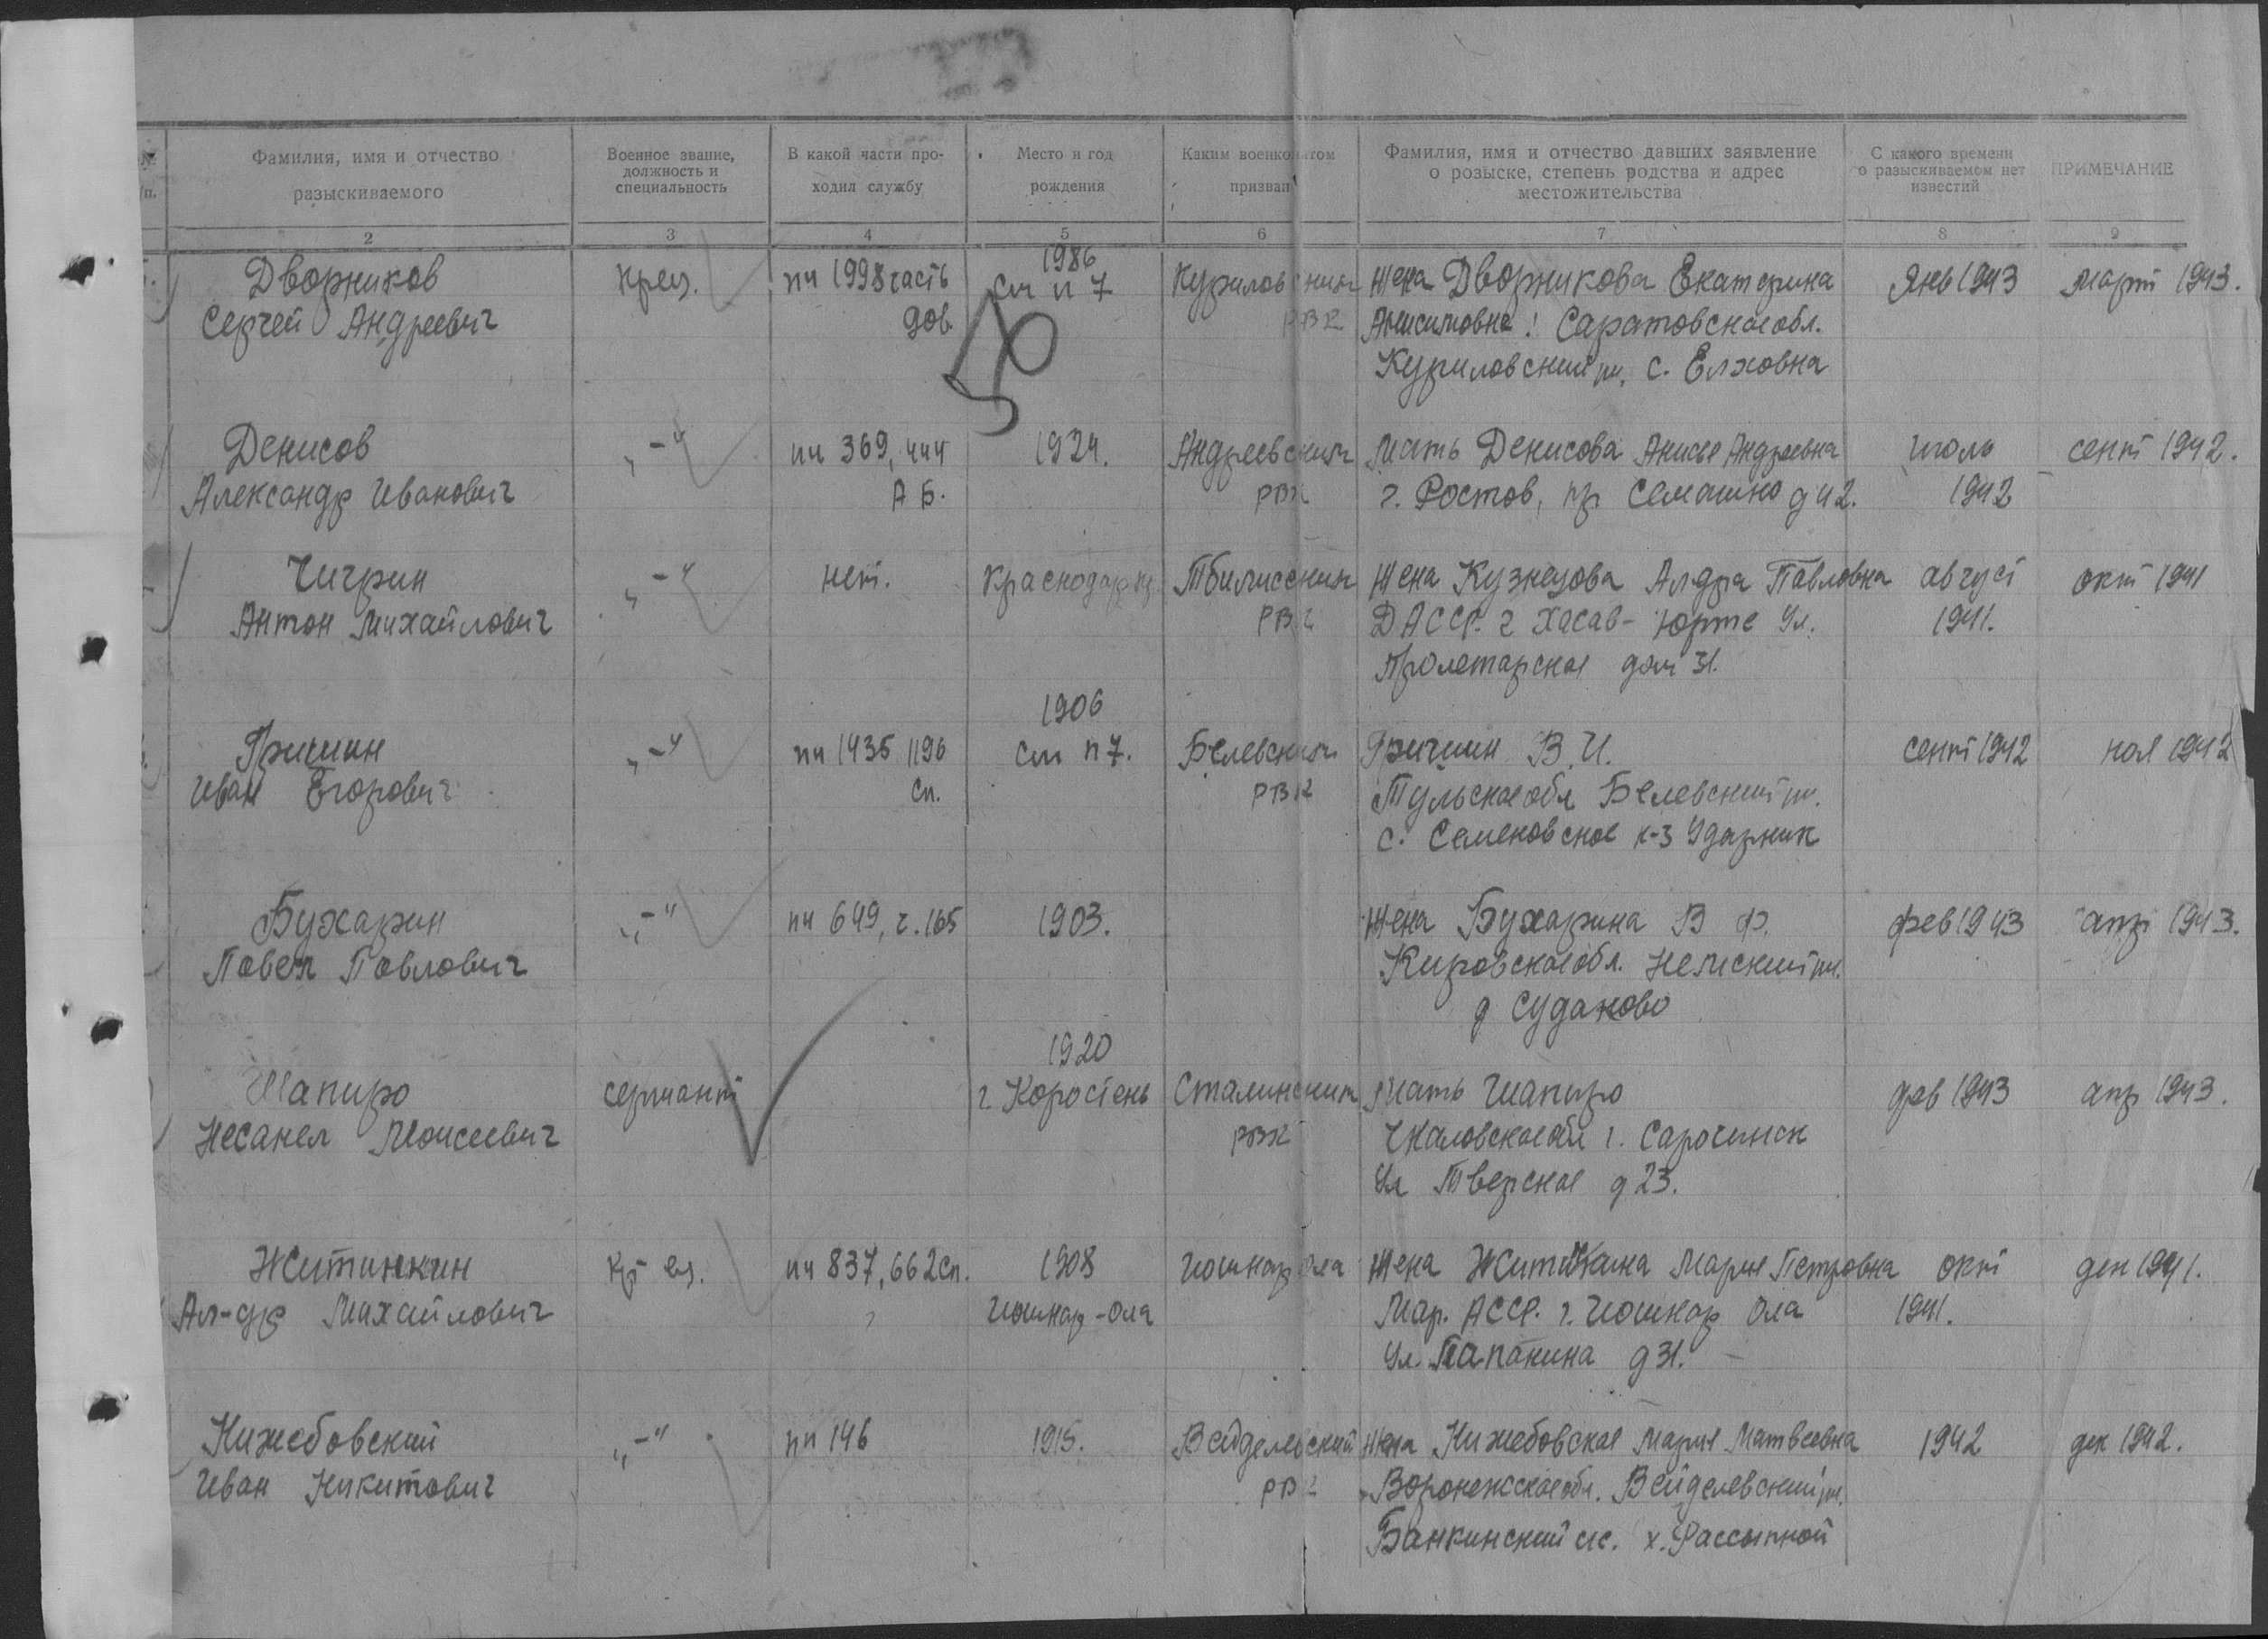 № п/п.
Фамилия, имя и отчество разыскиваемого
Военное звание, должность и специальность
В какой части проходил службу
Место и год рождения
Каким военкоматом призван
Фамилия, имя и отчество давших заявление о розыске, степень родства и адрес местожительства
С какого времени о разыскиваемом нет известий
ПРИМЕЧАНИЕ
2 3 4 5 6 7 8 9
1986
Дворников крец. пч 1998 часть См п 7 Куриловским Жена Дворникова Екатерина Янв 1943 март 1943.
Сергей Андреевич РВК Анисимовна! Саратовская обл.
Куриловский рн, с. Елховка
Денисов „-“ пч 369, ччч 1924. Андреевским Мать Денисова Анисья Андреевна июль сент 1942.
Александр Иванович АБ. РВК г. Ростов, пр Семашко д 42. 1942
Чигрин „-“ нет. Краснодар Тбилисским Жена Кузнецова Алдра Павловна август окт 1941
Антон Михайлович РВК ДАССР. г Хасав-Юрте Ул. 1941.
Пролетарская дом 31.
1906
Гришин „-“ пч 1435 1196 См п 7. Белевским Гришин В. И. сент 1942 ноя 1942
Иван Егорович сп. РВК Тульская обл Белевский рн.
с. Семеновское к-з Ударник
Бухарин „-“ пч 649, ч. 165 1903. Жена Бухарина В Ф. фев 1943 апр 1943.
Павел Павлович Кировская обл. Немский рн.
д Судаково
1920
Шапиро сержант г. Коростень Сталинским Мать Шапиро фев 1943 апр 1943.
Несанел Моисеевич РВК Чкаловская обл г. Сарочинск
Ул Тверская д 23.
Житинкин Кр-ец. пч 837, 662 сп. 1908 Иошкар Ола Жена Житинкина Мария Петровна окт дек 1941.
Ал-др Михайлович Иошкар-Ола Мар. АССР. г. Иошкар Ола 1941.
Ул. Папанина д 31.
Нижебовский „-“ пп 146 1915. Вейделевский Жена Нижебовская Мария Матвеевна 1942 дек 1942.
Иван Никитович РВК Воронежская обл. Вейделевский рн.
Банкинский с/с. х. Рассыпной